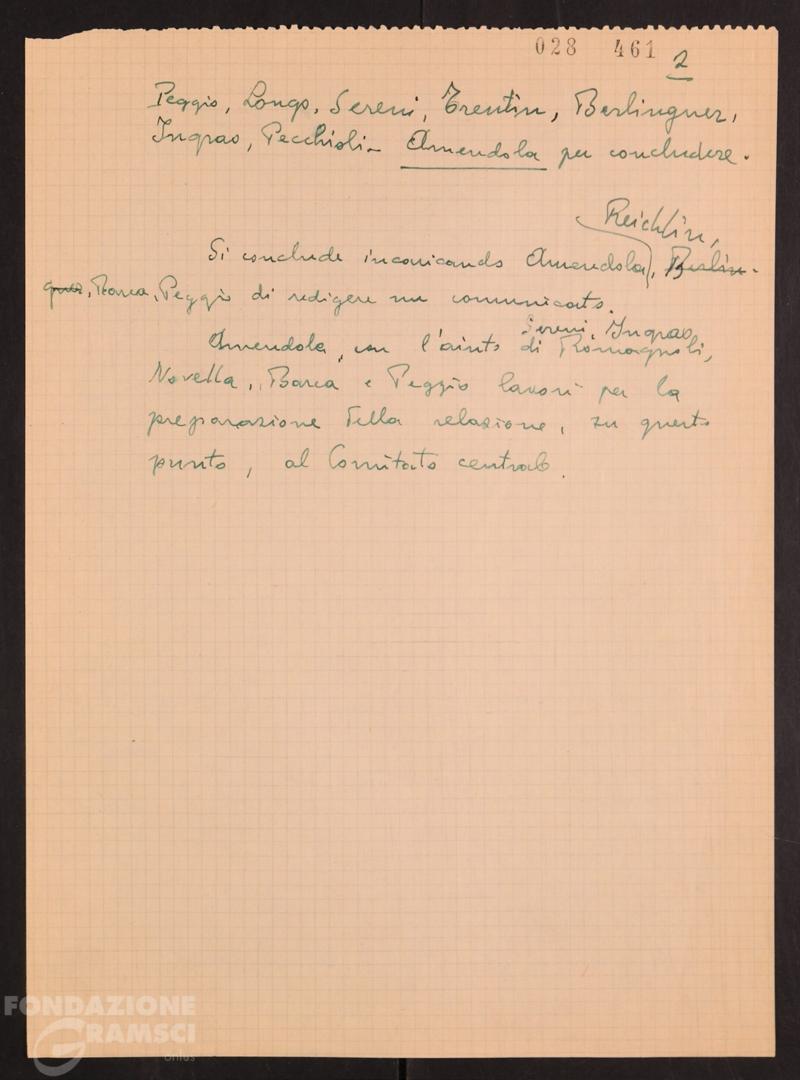 028 461
2
Peggio, Longo, Sereni, Trentin, Berlinguer,
Ingrao, Pecchioli - Amendola per concludere.
Reichlin,
Si conclude incaricando Amendola, Berlin-
guer, Barca, Peggio di redigere un comunicato.
Sereni, Ingrao,
Amendola, con l'aiuto di Romagnoli,
Novella, Barca e Peggio lavori per la
preparazione della relazione, su questo
punto, al Comitato centrale.
FONDAZIONE
GRAMSCI
onlus